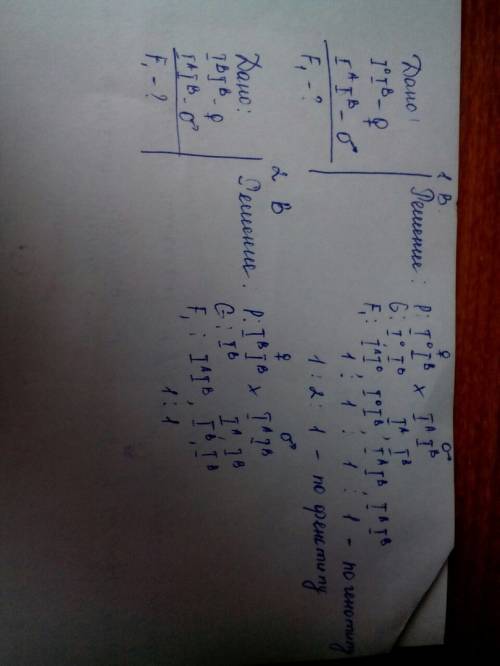 1 В.
Дано:
I⁰Iᴮ - ♀
IᴬIᴮ - ♂
F₁ - ?
Решение:
P: ♀ I⁰Iᴮ × ♂ IᴬIᴮ
G: I⁰, Iᴮ Iᴬ, Iᴮ
F₁: IᴬI⁰, I⁰Iᴮ, IᴬIᴮ, IᴬIᴮ
1 : 1 : 1 : 1 - по генотипу
1 : 2 : 1 - по фенотипу
2 В
Дано:
IᴮIᴮ - ♀
IᴬIᴮ - ♂
F₁ - ?
Решение:
P: ♀ IᴮIᴮ × ♂ IᴬIᴮ
G: Iᴮ Iᴬ, Iᴮ
F₁: IᴬIᴮ, IᴮIᴮ
1 : 1